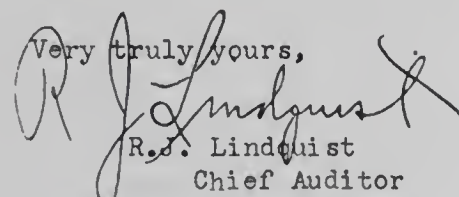 Very truly yours,
R J Lindquist
R.J. Lindquist
Chief Auditor